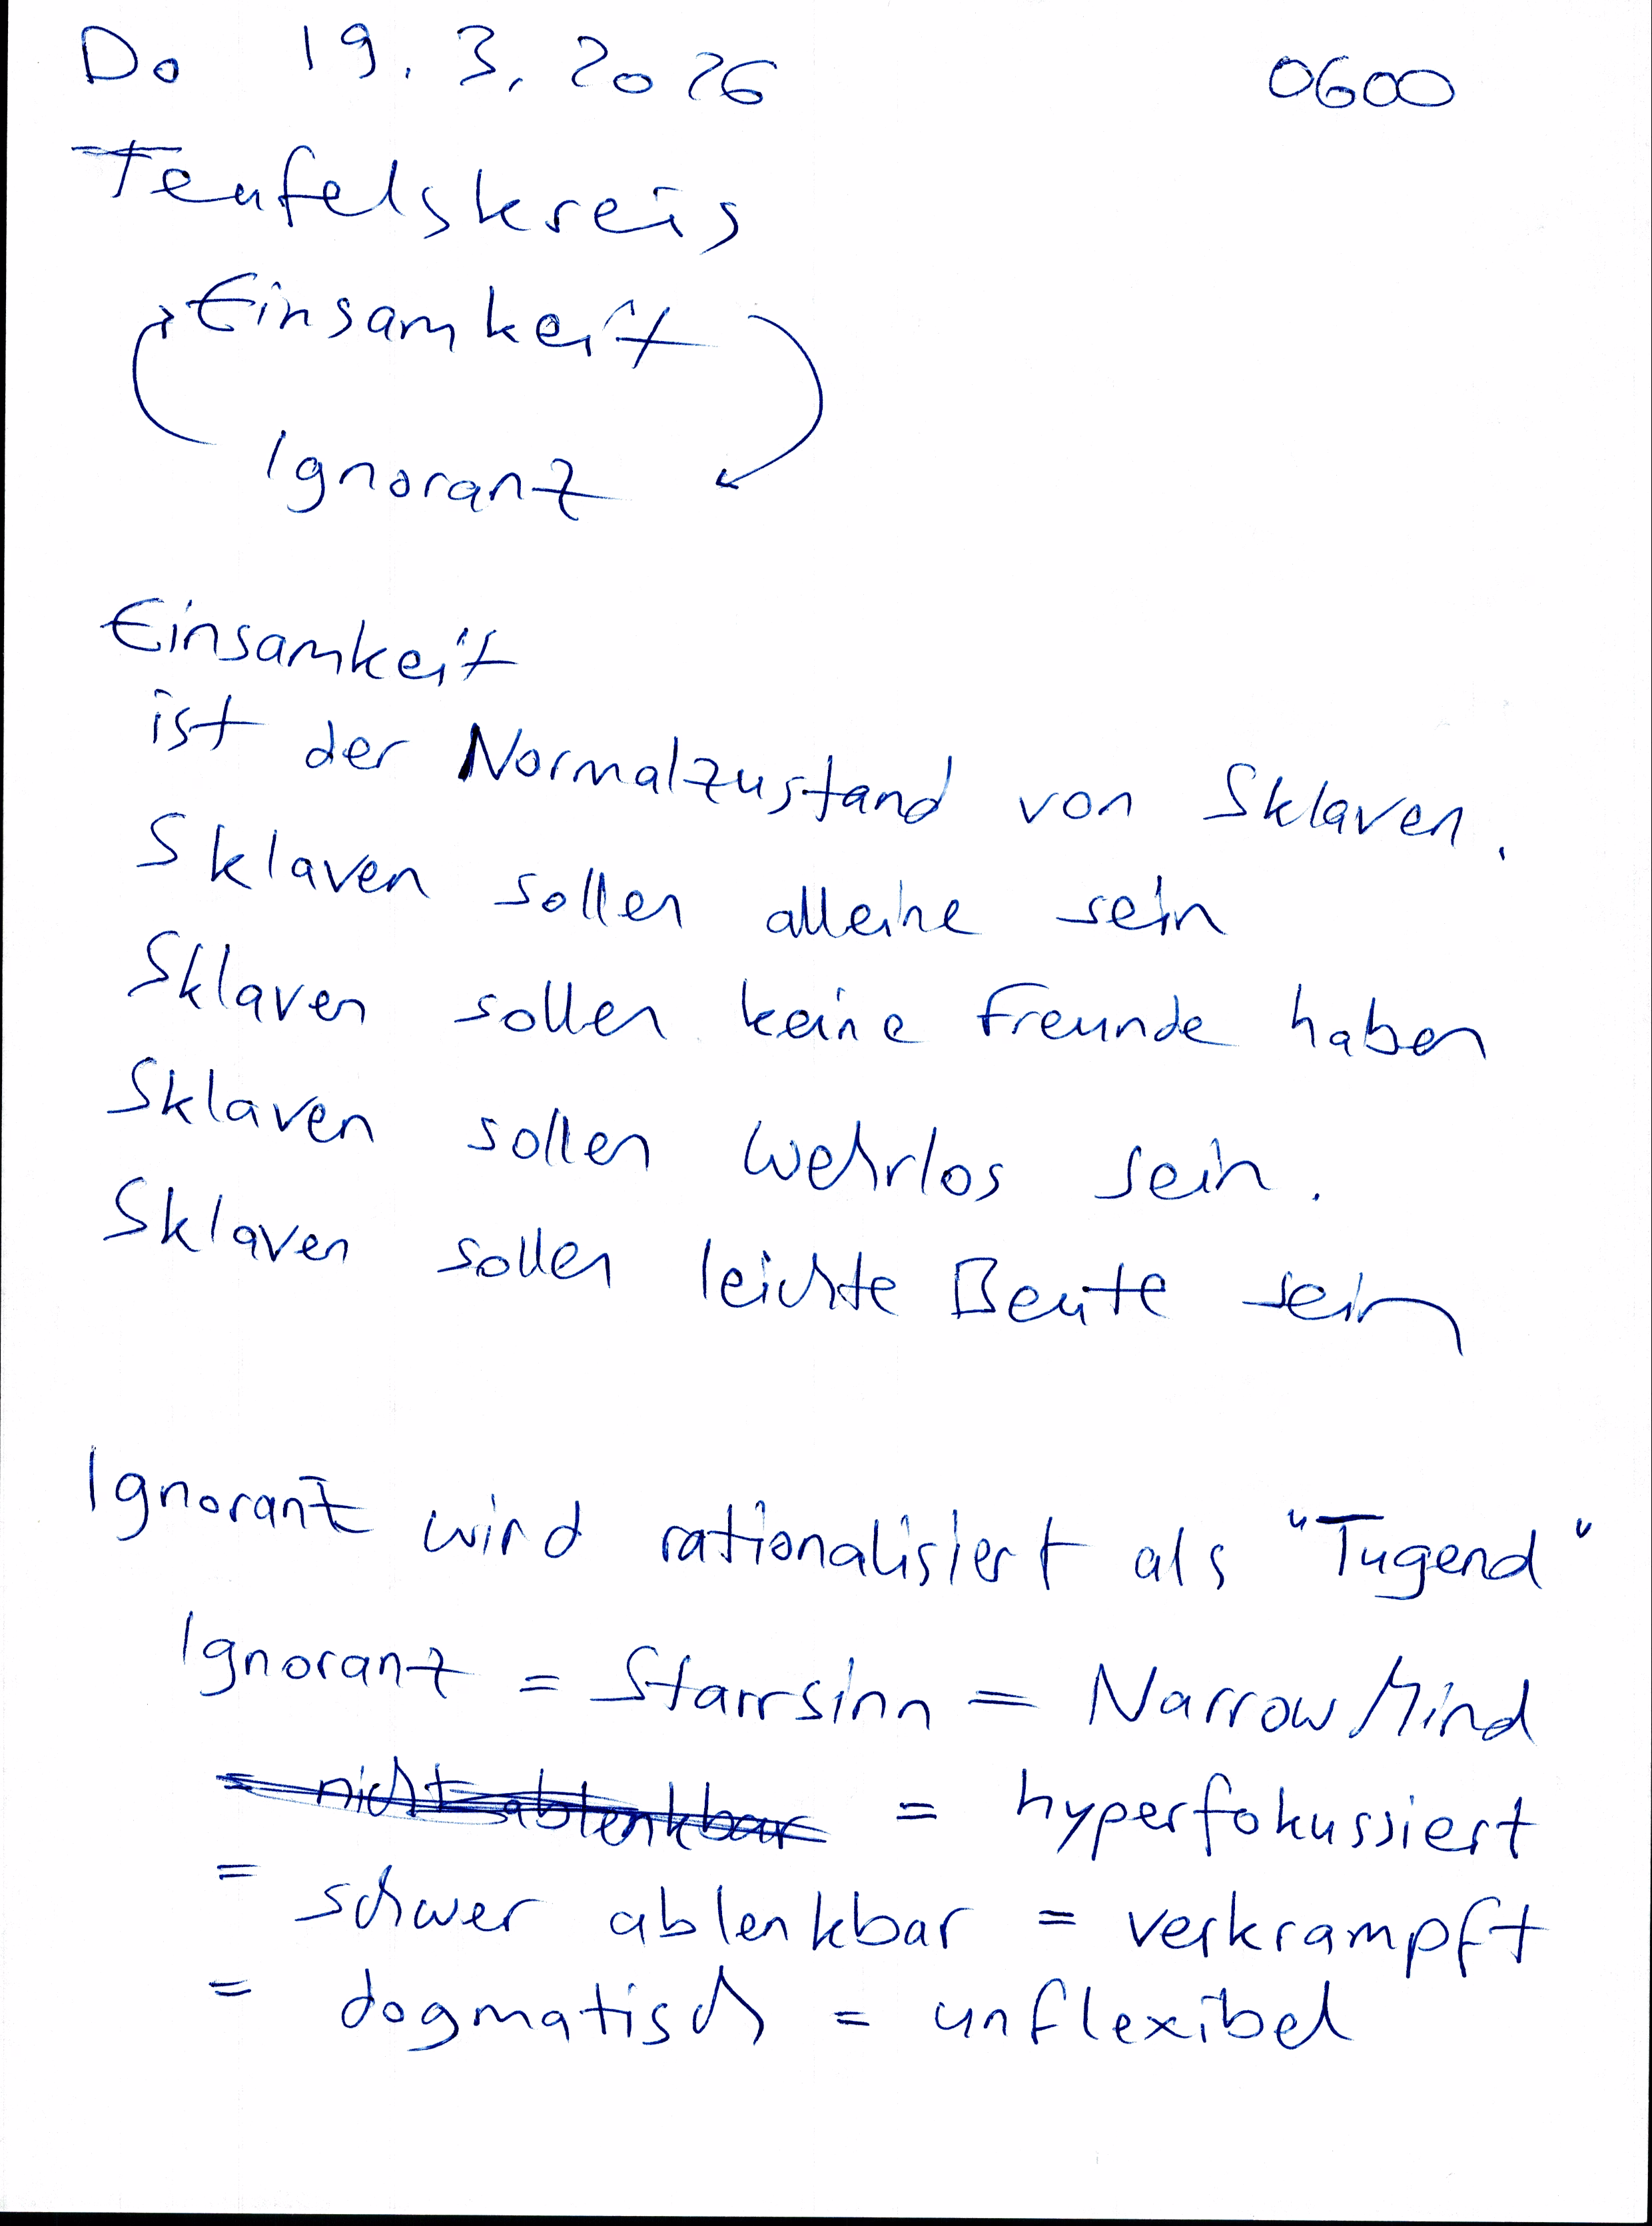 Do 19.3.2026 0600
Teufelskreis
Einsamkeit
Ignoranz
Einsamkeit
ist der Normalzustand von Sklaven.
Sklaven sollen alleine sein
Sklaven sollen keine Freunde haben
Sklaven sollen wehrlos sein.
Sklaven sollen leichte Beute sein
Ignoranz wird rationalisiert als "Tugend"
Ignoranz = Starrsinn = Narrow Mind
= nicht ablenkbar = hyperfokussiert
= schwer ablenkbar = verkrampft
= dogmatisch = unflexibel